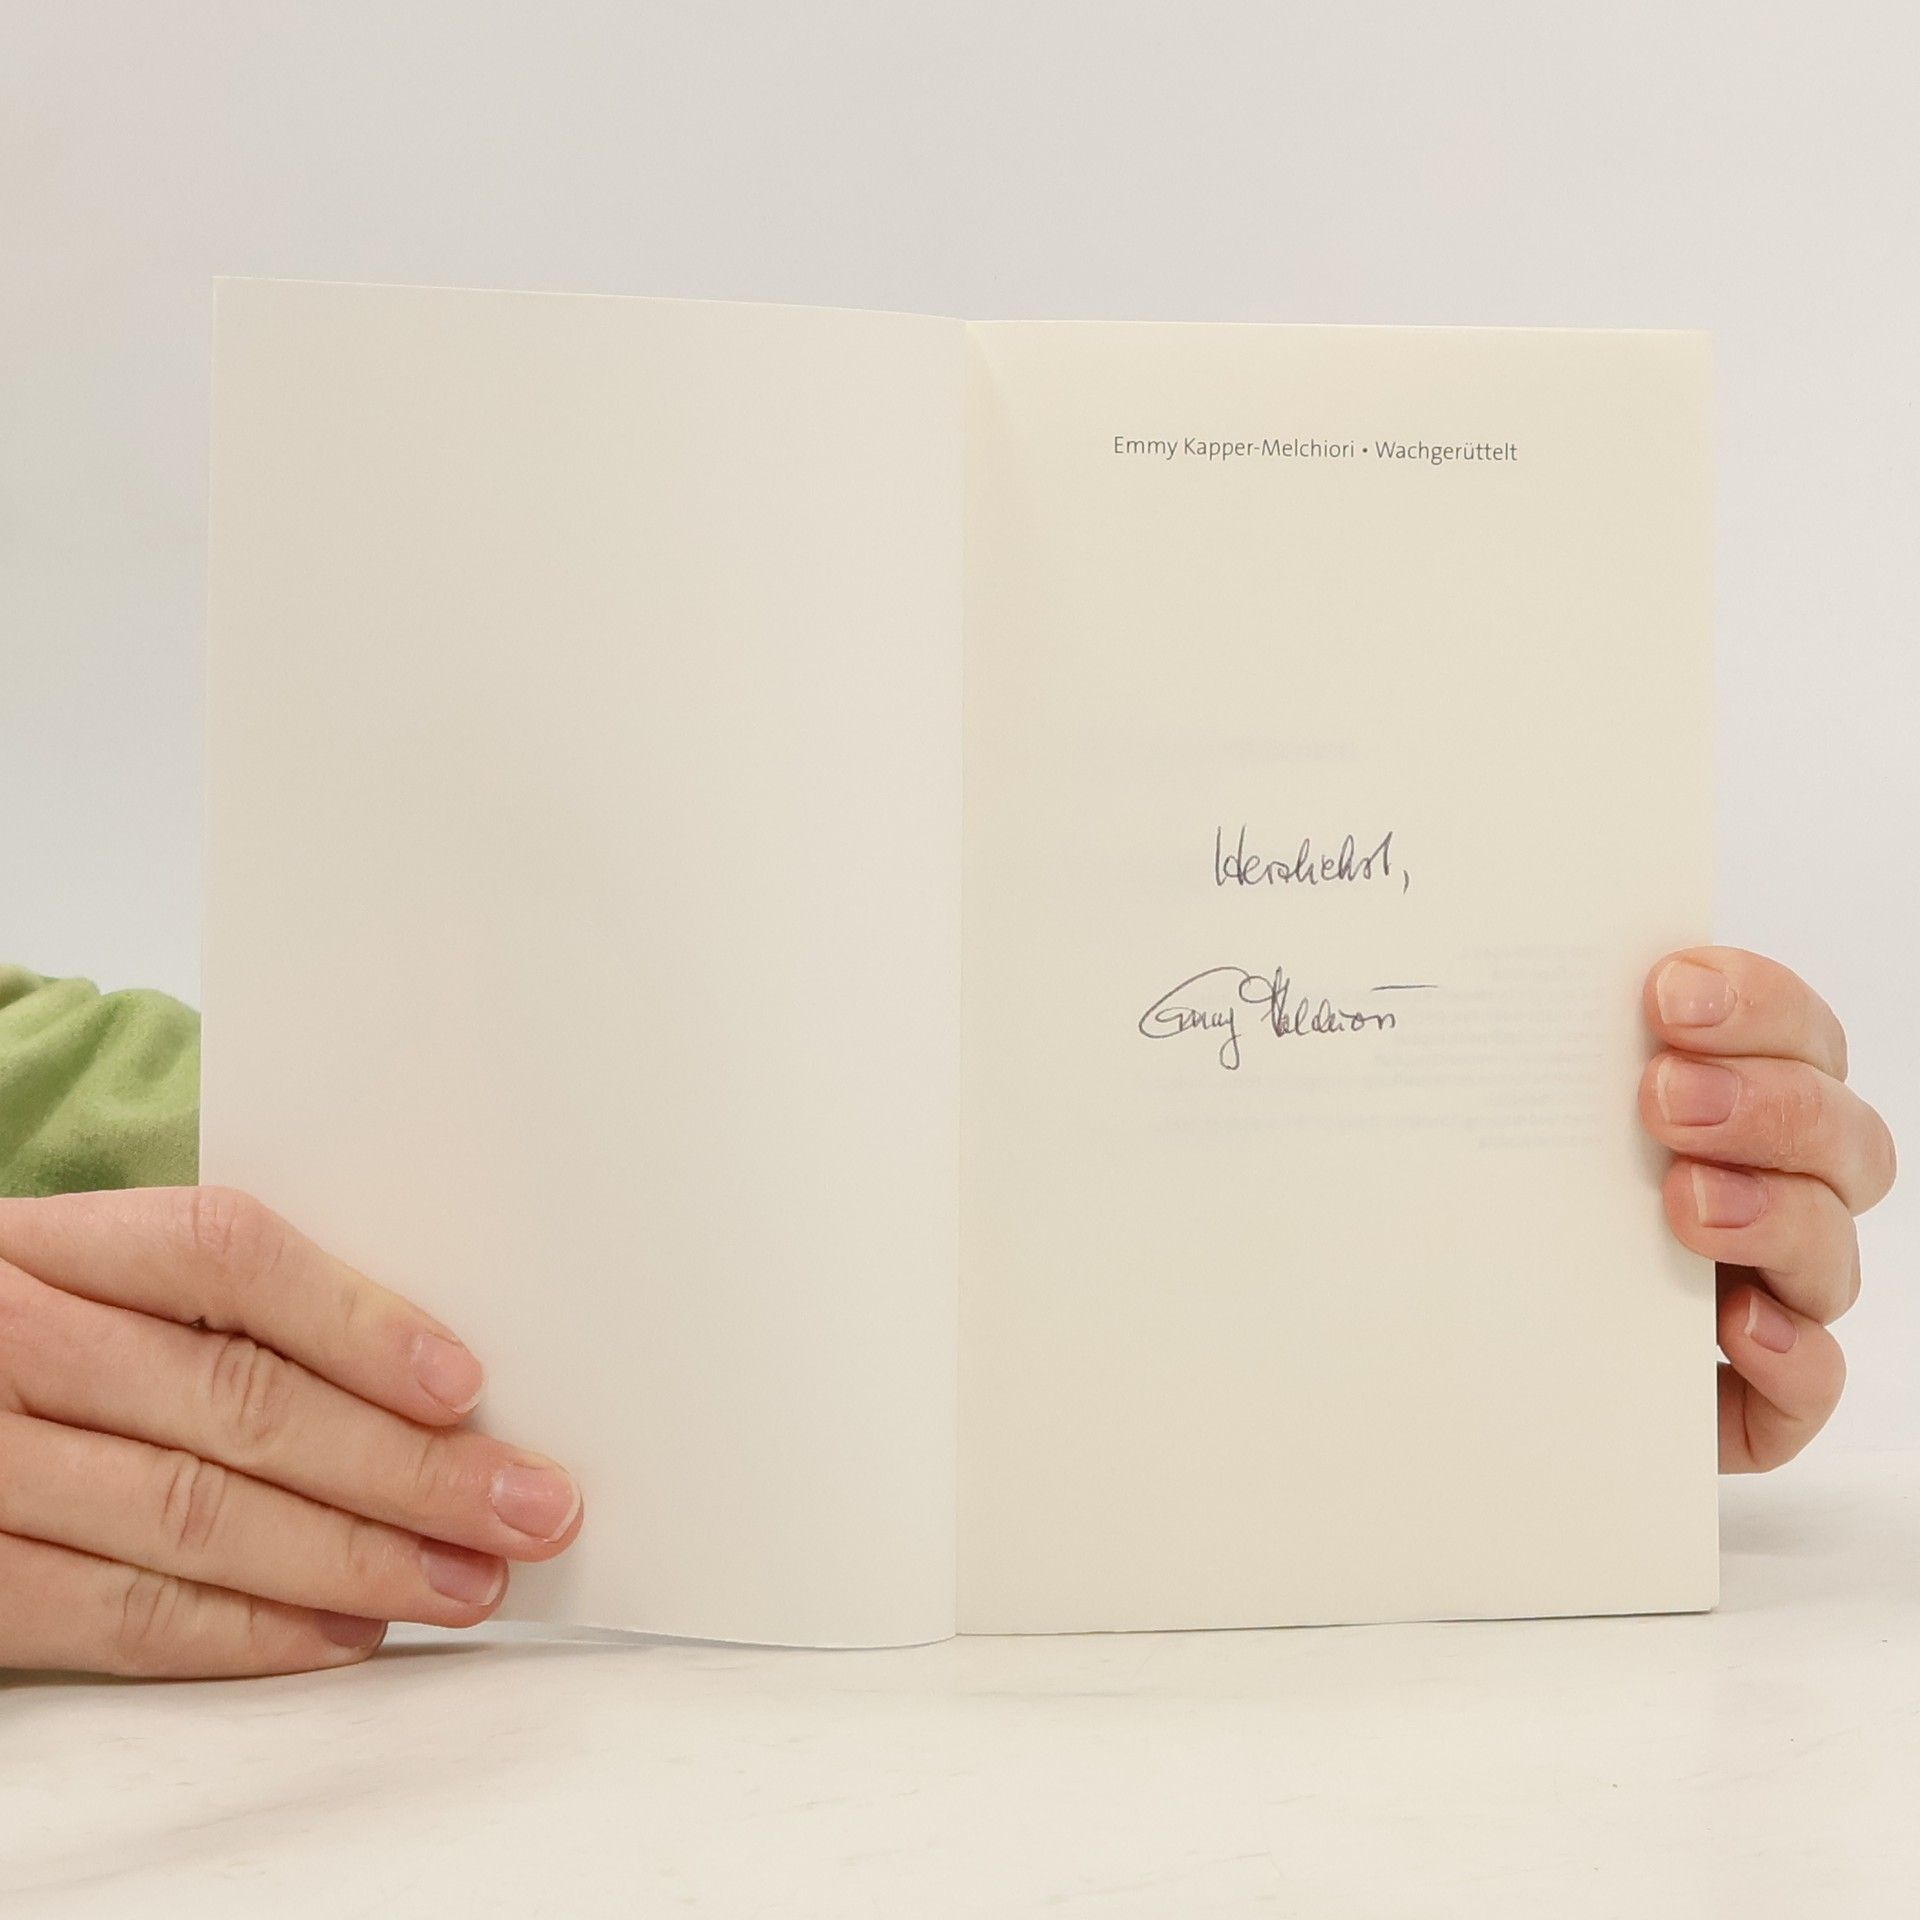 Emmy Kapper-Melchiori • Wachgerüttelt
Herzlichst,
Emmy Melchiori